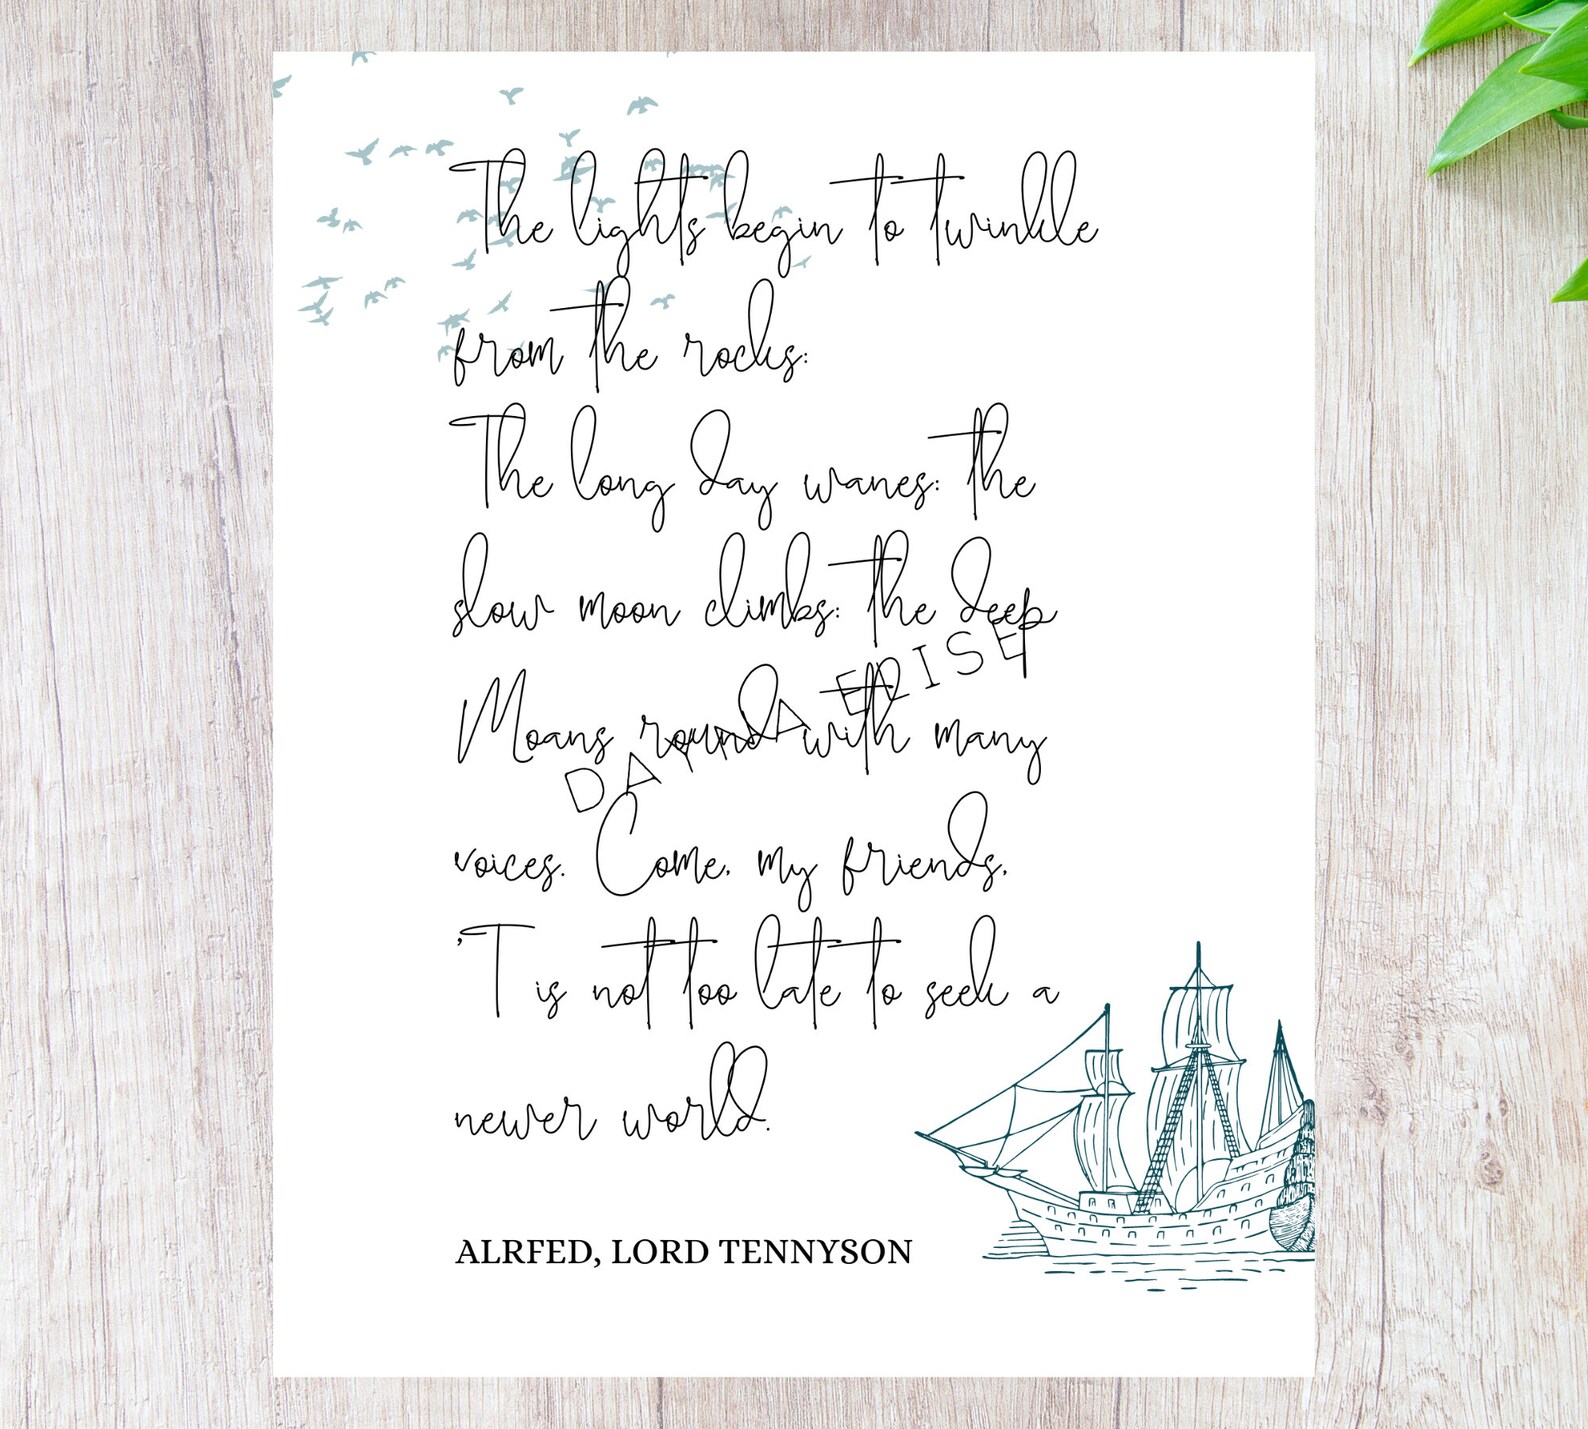 The lights begin to twinkle
from the rocks:
The long day wanes: the
slow moon climbs: the deep
Moans round with many
voices. Come, my friends,
'T is not too late to seek a
newer world.
ALRFED, LORD TENNYSON